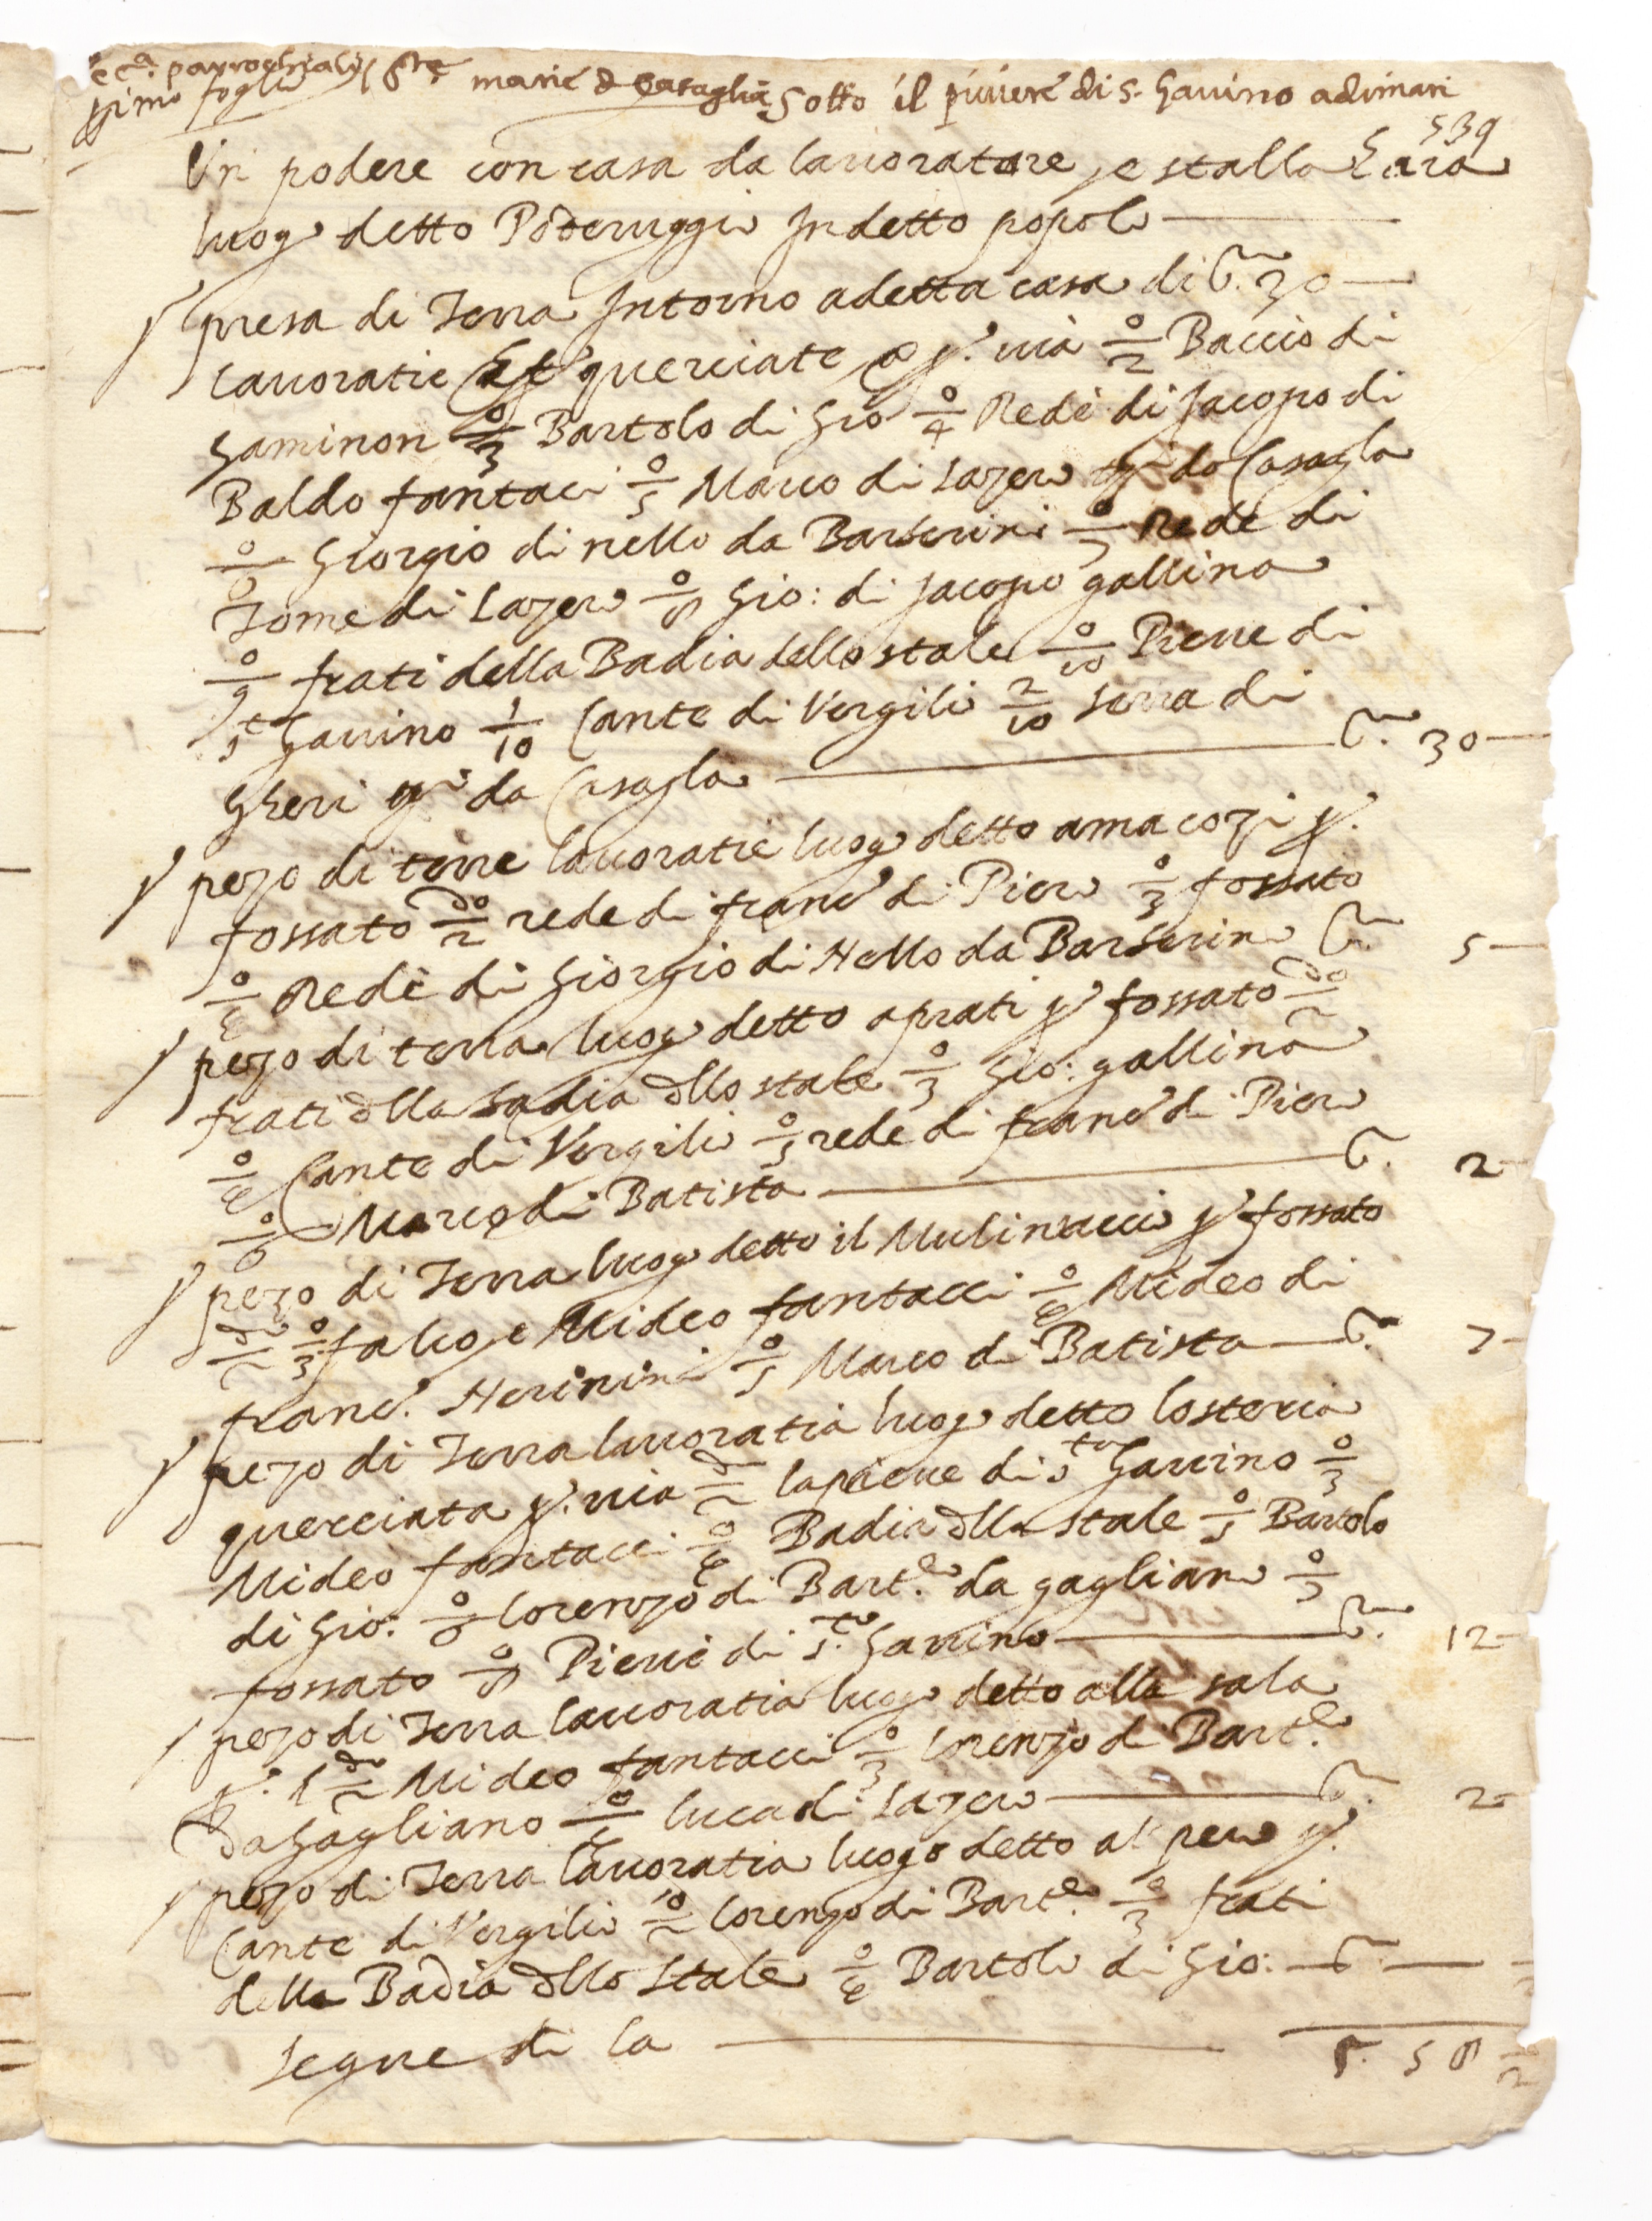 parrochialis Ste marie d Casaglia sotto il piuiere di s. Gauino adimari
primo foglio
539
Un podere con casa da lauoratore, e stalla
luogo detto Poderuggio In detto popolo
presa di Terra Intorno adetta casa di 30
lauoratie Et querciate p.º uia 0/2 Baccio di
0/3 Bartolo di Gio 0/4 Rede di Jacopo di
Baldo fantaci 0/5 Marco di Lazero da Casagla
0/6 Giorgio di nello da Barberino 0/7 Rede di
Tome di Lazero 0/8 Gio: di Jacopo gallina
0/9 frati della Badia dello stale 0/10 Pieue di
sto Gauino 1/10 Cante di Vergilio 2/10 Serra di
Gheri da Casagla 30
pezo di terre lauoratie luogo detto amacozi p.º
fossato do/2 rede di franc.º di Piero 0/3 fossato
0/4 Rede di Giorgio di Nello da Barberino 5
pezo di terra luogo detto aprati p.º fossato do/2
frati dlla badia dllo stale 0/3 Gio: gallina
0/4 Cante di Vergilio 0/5 rede di franc.º di Piero
0/6 Marco di Batista 2
pezo di Terra luogo detto il Mulinuccio p.º fossato
do/2 0/3 falco e Mideo fantacci 0/4 Mideo di
franc.º Nerinini 0/5 Marco di Batista 7
pezo di Terra lauoratia luogo detto losteria
querciata p.º uia do/2 la pieue di sto Gauino 0/3
Mideo fantacci 0/4 Badia dllo stale 0/5 Bartolo
di Gio: 0/6 lorenzo di Bart.º da gagliano 0/7
fossato 0/8 Pieue di s.to Gauino 12
pezo di Terra lauoratia luogo detto alla sala
p.º do/2 Mideo fantacci 0/3 lorenzo di Bart.º
da Gagliano 0/4 luca di Lazero 2
pezo di Terra lauoratia luogo detto al pero p.º
Cante di Vergilio 0/2 lorenzo di Bart.º 0/3 frati
della Badia dllo stale 0/4 Bartolo di Gio:
segue di la 58 1/2